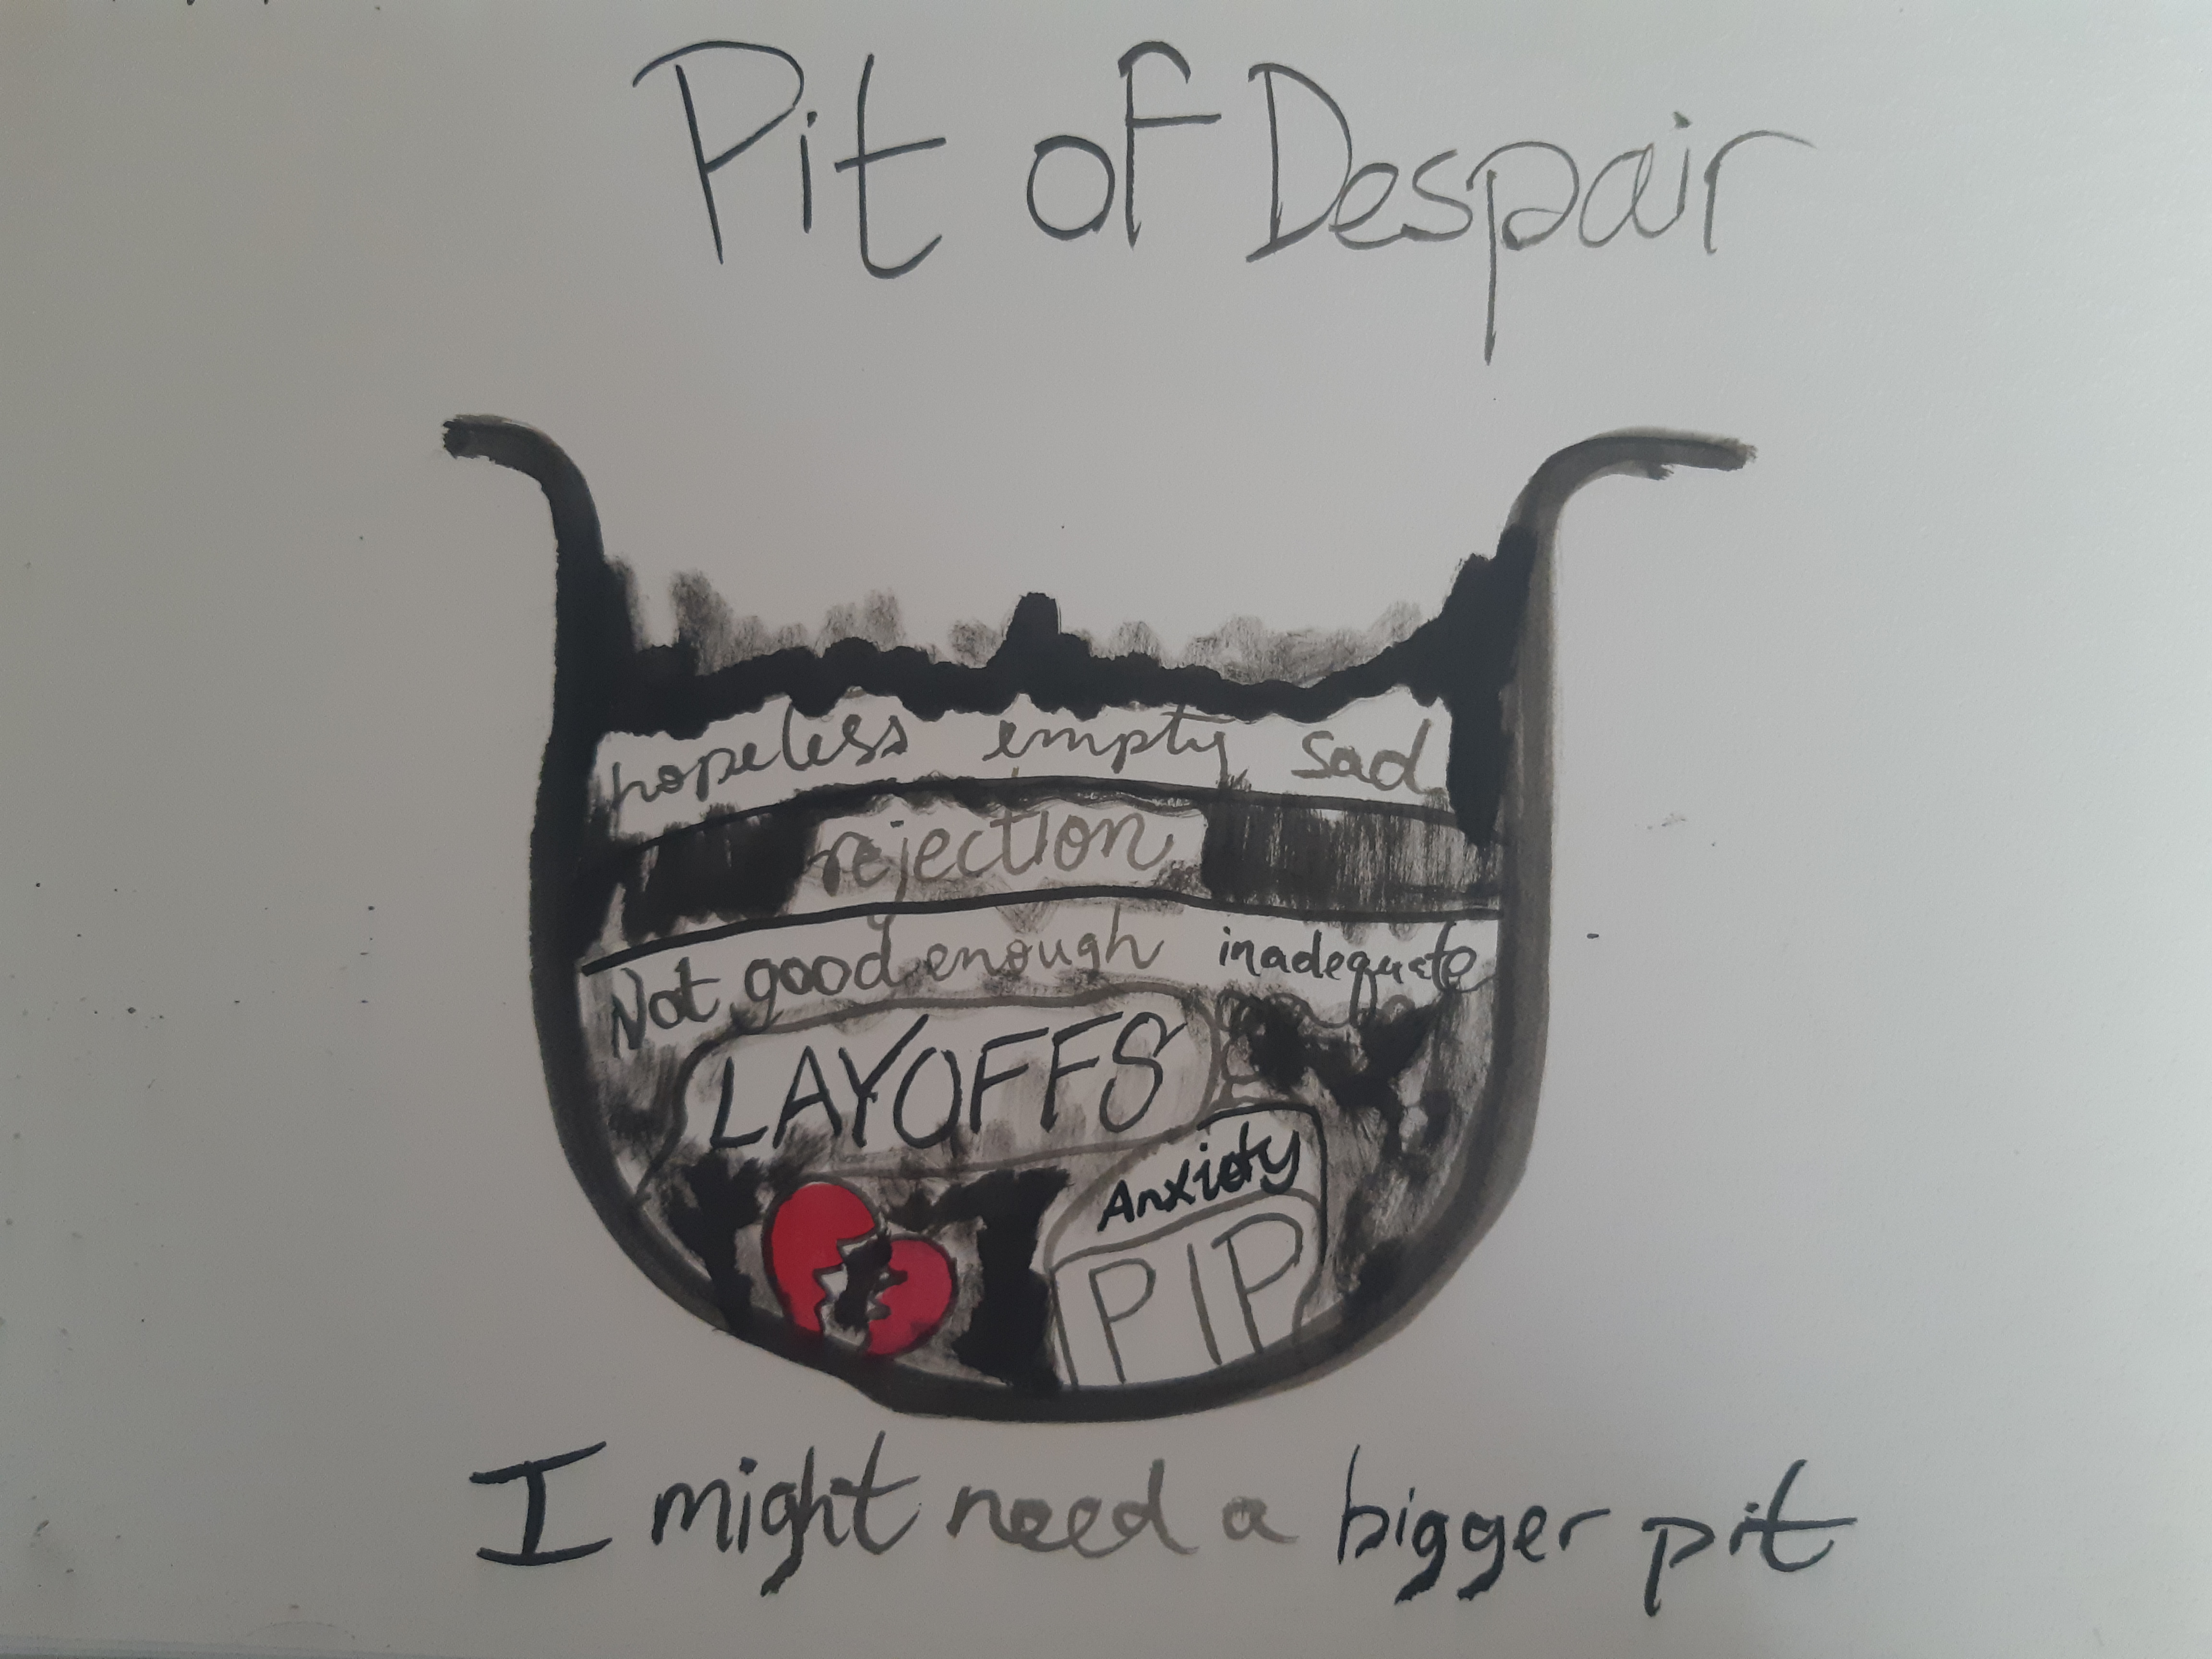 Pit of Despair
hopeless empty sad
rejection
Not good enough inadequate
LAYOFFS
Anxiety
PIP
I might need a bigger pit